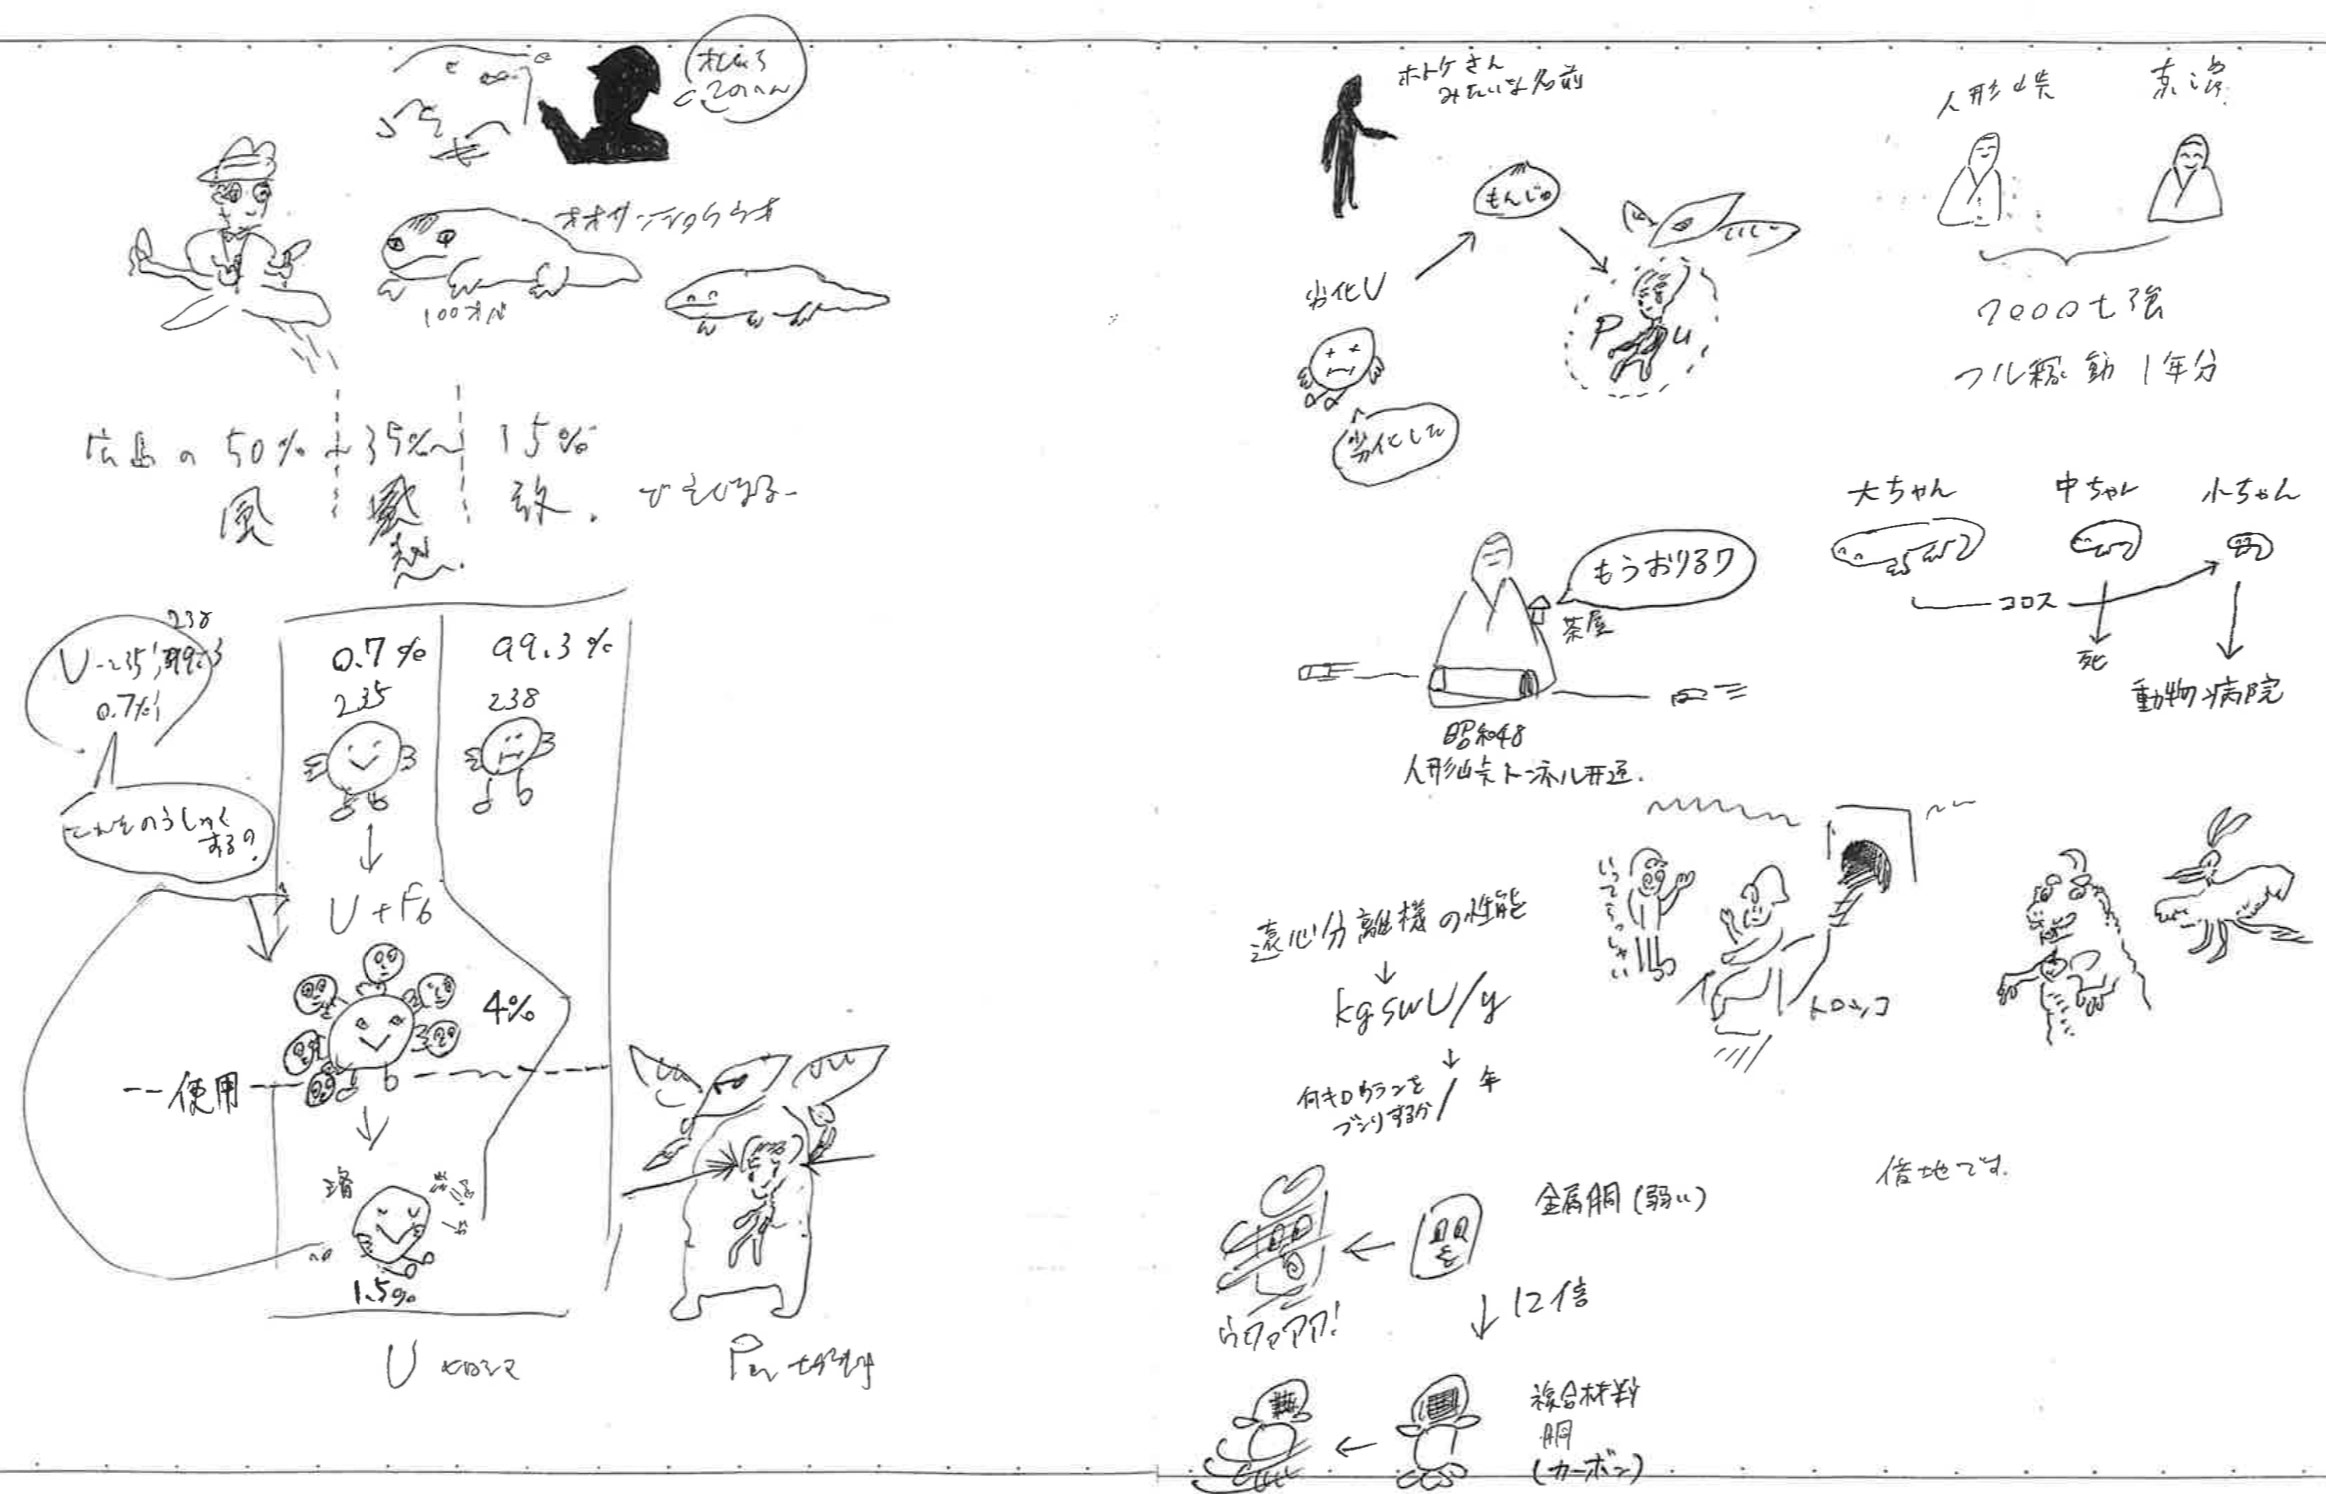 オオサンショウウオ
100才
広島の 50% 35% 15%
風
238
U-235
0.7%
0.7% 99.3%
235 238
これをのうしゅく
するの。
U+F6
4%
使用
1.5%
U
ホトケさん
みたいな名前
もんじゅ
劣化U
Pu
劣化した
人形峠
フル稼動 1年分
大ちゃん 中ちゃん 小ちゃん
コロス
死
動物病院
もうおりるワ
茶屋
昭和48
人形峠トンネル開通.
いってらっしゃい
トロッコ
遠心分離機の性能
↓
kgSWU/y
↓
何キロウランを
ブンリするか/年
借地です.
金属胴(弱い)
↓12倍
複合材料
胴
(カーボン)